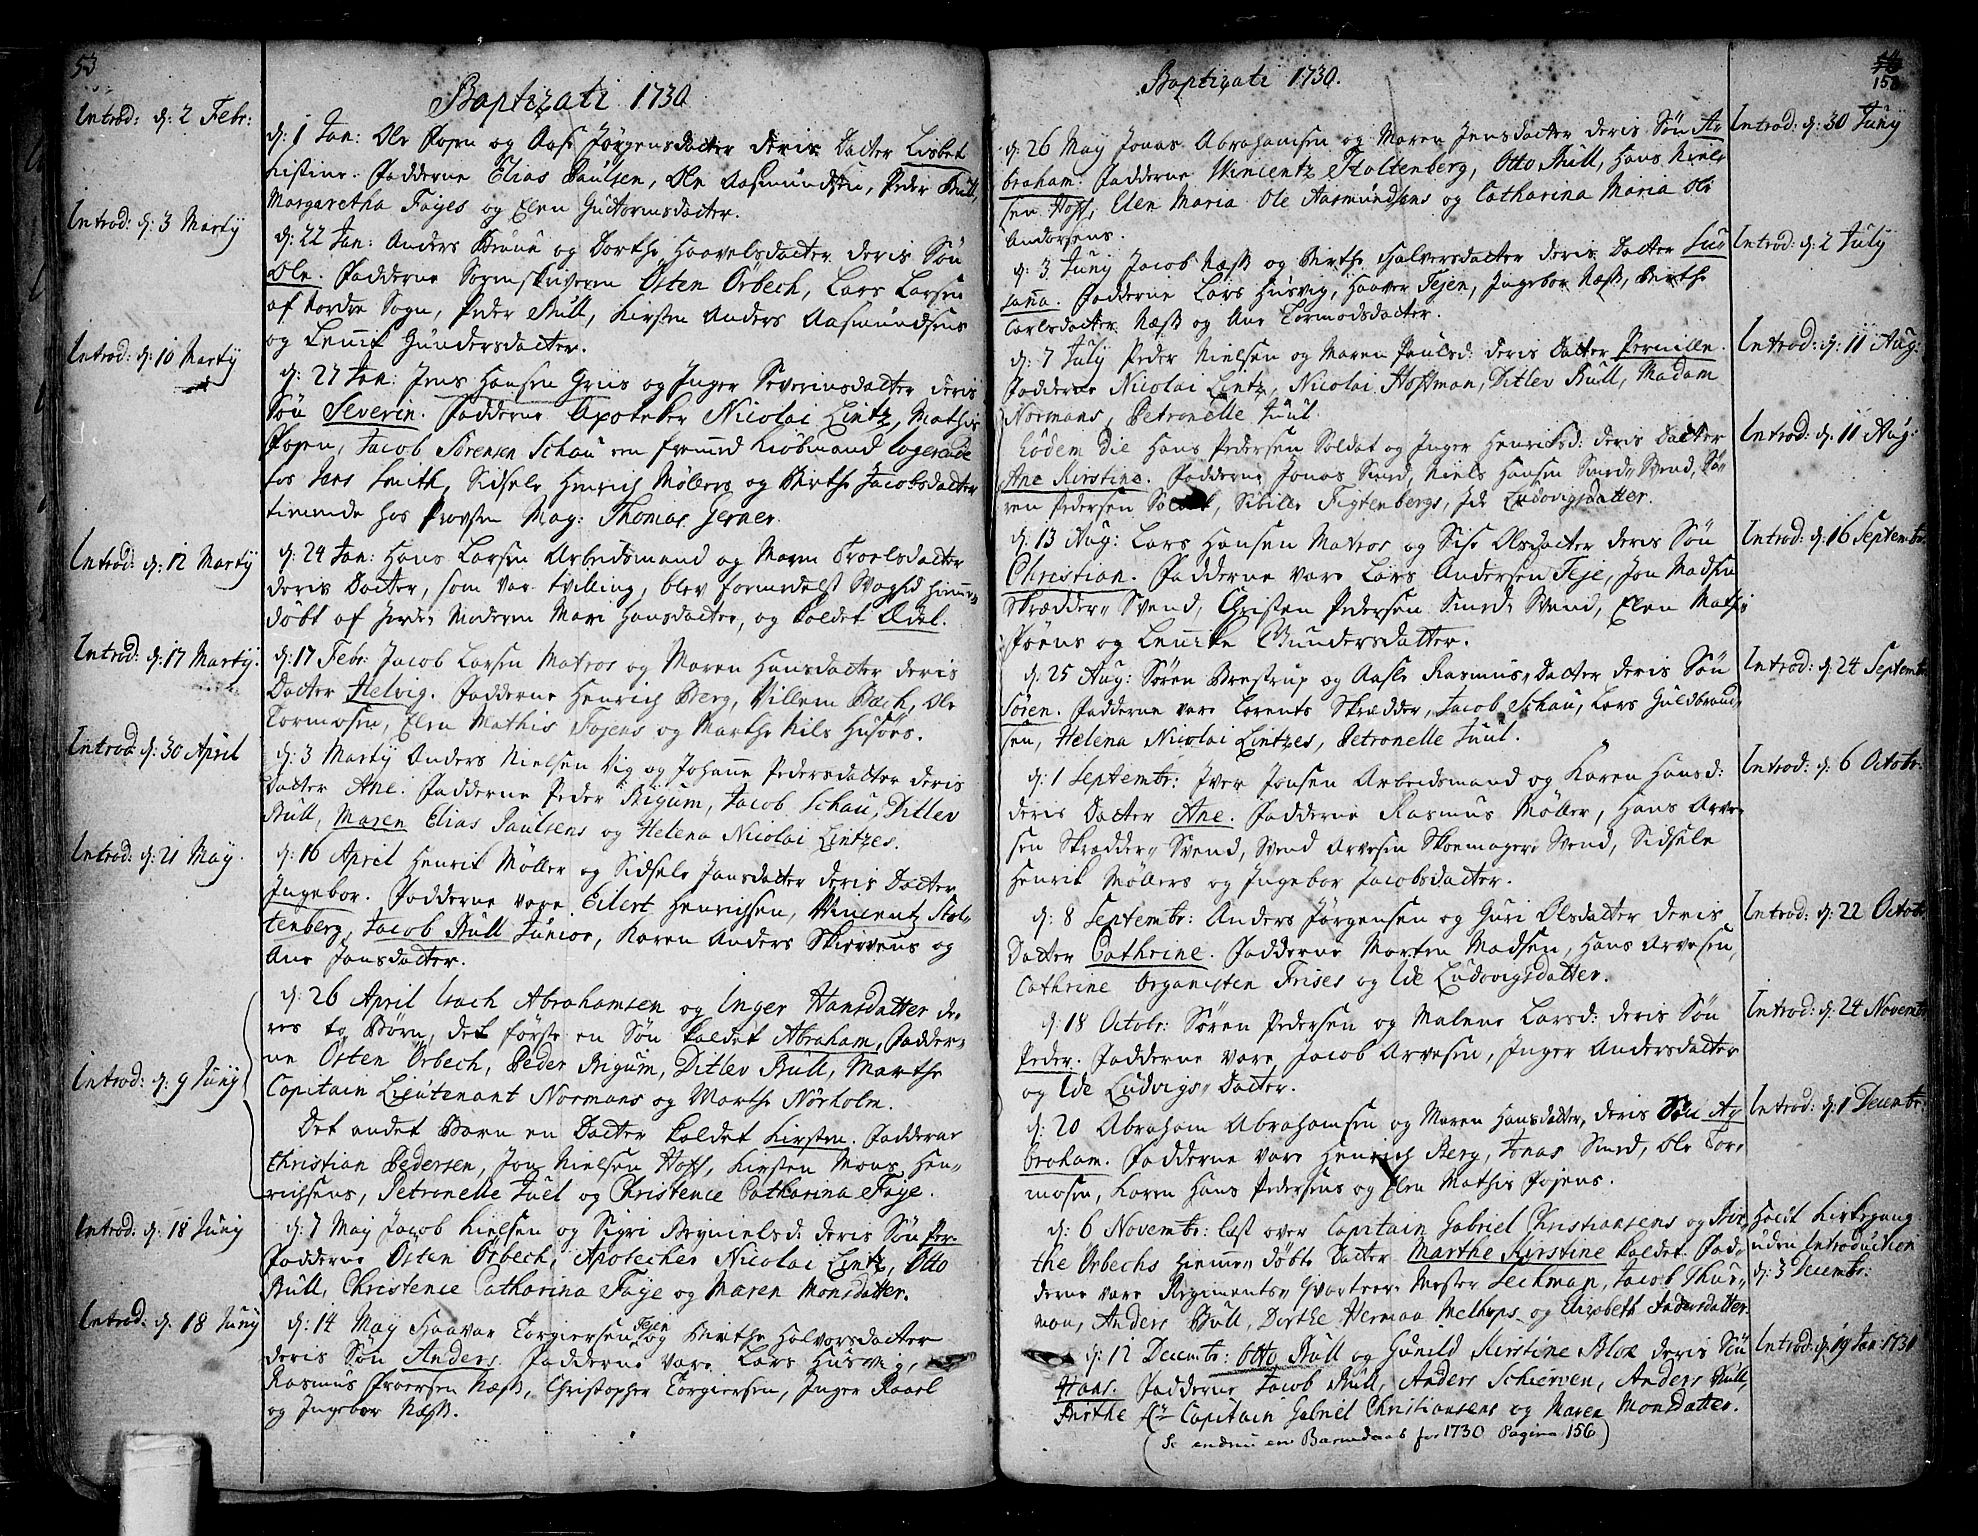 53
Baptizati 1730
Introd: d: 2 Febr:
d: 1 Jan: Ole Fojen og Aase Jørgensdatter deris Datter Lisbet
Kistine. Fadderne Elias Paulsen, Ole Aasmundsen, Peder Bull,
Margaretha Fayes og Elen Guttormsdatter.
Introd: d: 3 Martij
d: 22 Jan: Anders Bruun og Dorthe Haavelsdatter deris Søn
Ole. Fadderne Sorenskriveren Østen Ørbech, Lars Larsen
af Nordre Sogn, Peder Bull, Kirsten Anders Aasmundsens
og Lenike Gundersdatter.
Introd: d: 10 Martij
d: 27 Jan: Jens Hansen Griis og Inger Severinsdatter deris
Søn Severin. Fadderne Apoteker Nicolai Lintz, Mathis
Fojen, Jacob Sørensen Schau en fremmed Kiøbmand logerende
hos Jens Smith, Sidsele Hinrich Møllers og Birthe Jacobsdatter
tienende hos Provsten Mag: Thomas Gerner.
Introd: d: 12 Martij
d: 24 Jan: Hans Larsen Arbeidsmand og Maren Troelsdatter
deris Datter, som var tvilling, blev formedelst Svaghed hiemme-
døbt af Jorde-Moderen Mari Hansdatter, og kaldet Ædel.
Introd: d: 17 Martij.
d: 17 Febr: Jacob Larsen Matros og Maren Hansdatter deris
Datter Helvig. Fadderne Henrich Berg, Villem Bech, Ole
Tormosen, Elen Mathis Fojens og Marthe Nils Husøes.
Introd: d: 30 April
d: 3 Martij Anders Nielsen Vig og Johanne Pedersdatter deris
Datter Ane. Fadderne Peder Rigum, Jacob Schau, Ditlev
Bull, Maren Elias Paulsens og Helena Nicolai Lintzes.
Introd: d: 21 May.
d: 16 April Henrik Møller og Sidsele Jansdatter deris Datter
Ingebor. Fadderne vare Eilert Henrichsen, Vincentz Stol-
tenberg, Jacob Bull Junior, Karen Anders Skiervens og
Ane Jansdatter.
Introd: d: 9 Junij
d: 26 April Isach Abrahamsen og Inger Hansdatter de-
res to Børn, det første en Søn kaldet Abraham, Fadder-
ne Østen Ørbech, Peder Rigum, Ditlev Bull, Marthe
Capitain Lieutenant Normans og Marthe Nørholm.
Det andet Barn en Datter kaldet Kirsten. Fadderne
Christian Pedersen, Jon Nielsen Hoff, Kirsten Mons Hen-
richsens, Petronelle Juel og Christence Catharina Faye.
Introd: d: 18 Junij
d: 7 May Jacob Nielsen og Sigri Brynielsd: deris Søn Per.
Fadderne Østen Ørbech, Apothecker Nicolai Lintz, Otto
Bull, Christence Catharina Faye og Maren Monsdatter.
Introd: d: 18 Junij
d: 14 May Haavar Torgiersen Tejen og Birthe Halvorsdatter
deris Søn Anders. Fadderne vare Lars Husvig,
Rasmus Næss, Christopher Torgiersen, Inger Raael
og Ingebor Næss.
54
158
Baptizati 1730.
Introd: d: 30 Junij
d: 26 May Jonas Abrahamsen og Maren Jensdatter deris Søn A-
braham. Fadderne Wincentz Stoltenberg, Otto Bull, Hans Niel-
sen Hoff, Elen Maria Ole Aasmundsens og Catharina Maria Ole
Andersens.
Introd: d: 2 Julij
d: 3 Junij Jacob Næss og Birthe Halversdatter deris Datter Su-
sanna. Fadderne Lars Husvig, Haaver Tejen, Ingebor Næss, Birthe
Carlsdatter Næss og Ane Tormodsdatter.
Introd: d: 11 Aug:
d: 7 July Peder Nielsen og Maren Paulsd: deris Datter Pernille.
Fadderne Nicolai Lintz, Nicolai Hoffman, Ditlev Bull, Madam
Normans, Petronelle Juul.
Introd: d: 11 Aug:
Eodem Die Hans Pedersen Soldat og Inger Henriksd: deris Datter
Ane Kirstine. Fadderne Jonas Smed, Niels Hansen Smed-Svend, Sø-
ren Pedersen Soldat, Sibille Figtenbergs, Ide Ludvigsdatter.
Introd: d: 16 Septembr:
d: 13 Aug: Lars Hansen Matros og Sise Olsdatter deris Søn
Christian. Fadderne vare Lars Andersen Teje, Jon Madsen
Skrædder-Svend, Christen Pedersen Smed-Svend, Elen Mathis
Fojens og Lenicke Gundersdatter.
Introd: d: 24 Septembr
d: 25 Aug: Søren Brestrup og Aasle Rasmus-Datter deris Søn
Søren. Fadderne vare Lorents Skrædder, Jacob Schau, Lars Guldbrand-
sen, Helena Nicolai Lintzes, Petronelle Juul.
Introd: d: 6 Octobr:
d: 1 Septembr: Iver Jonsen Arbeidsmand og Karen Hansd:
deris Datter Ane. Fadderne Rasmus Møller, Hans Arve-
sen Skrædder-Svend, Svend Arvesen Skoemager-Svend, Sidsele
Henrik Møllers og Ingebor Jacobsdatter.
Introd: d: 22 Octobr
d: 8 Septembr: Anders Jørgensen og Guri Olsdatter deris
Datter Cathrine. Fadderne Morten Madsen, Hans Arvesen,
Cathrine Organisten Frises og Ide Ludvigsdatter.
Introd: d: 24 Novembr
d: 18 Octobr: Søren Pedersen og Malene Larsd: deris Søn
Peder. Fadderne vare Jacob Arvesen, Inger Andersdatter
og Ide Ludvigs-Datter.
Introd: d: 1 Decembr:
d: 20 Abraham Abrahamsen og Maren Hansdatter, deris Søn A-
braham. Fadderne vare Henrich Berg, Jonas Smed, Ole Tor-
mosen, Karen Hans Pedersens og Elen Mathis Fojens.
Holdt Kirkegang
uden Introduction
d: 3 Decembr:
d: 6 Novembr: Læst over Capitain Gabriel Christiansens og Bir-
the Ørbechs hiemme-døbte Datter Marthe Kirstine kaldet. Fad-
derne vare Regiments-Qvarteer-Mester Leckman, Jacob Thur-
man, Anders Bull, Dorthe Herman Melhops og Elizabeth Andersdatter.
Introd: d: 19 Jan 1731
d: 12 Decembr: Otto Bull og Gunild Kirstine Blox deris Søn
Hans. Fadderne Jacob Bull, Anders Schierven, Anders Bull,
Birthe Sr Capitain Gabriel Christiansens og Maren Monsdatter.
(Se endnu en Barnedaab for 1730 Pagina 156)